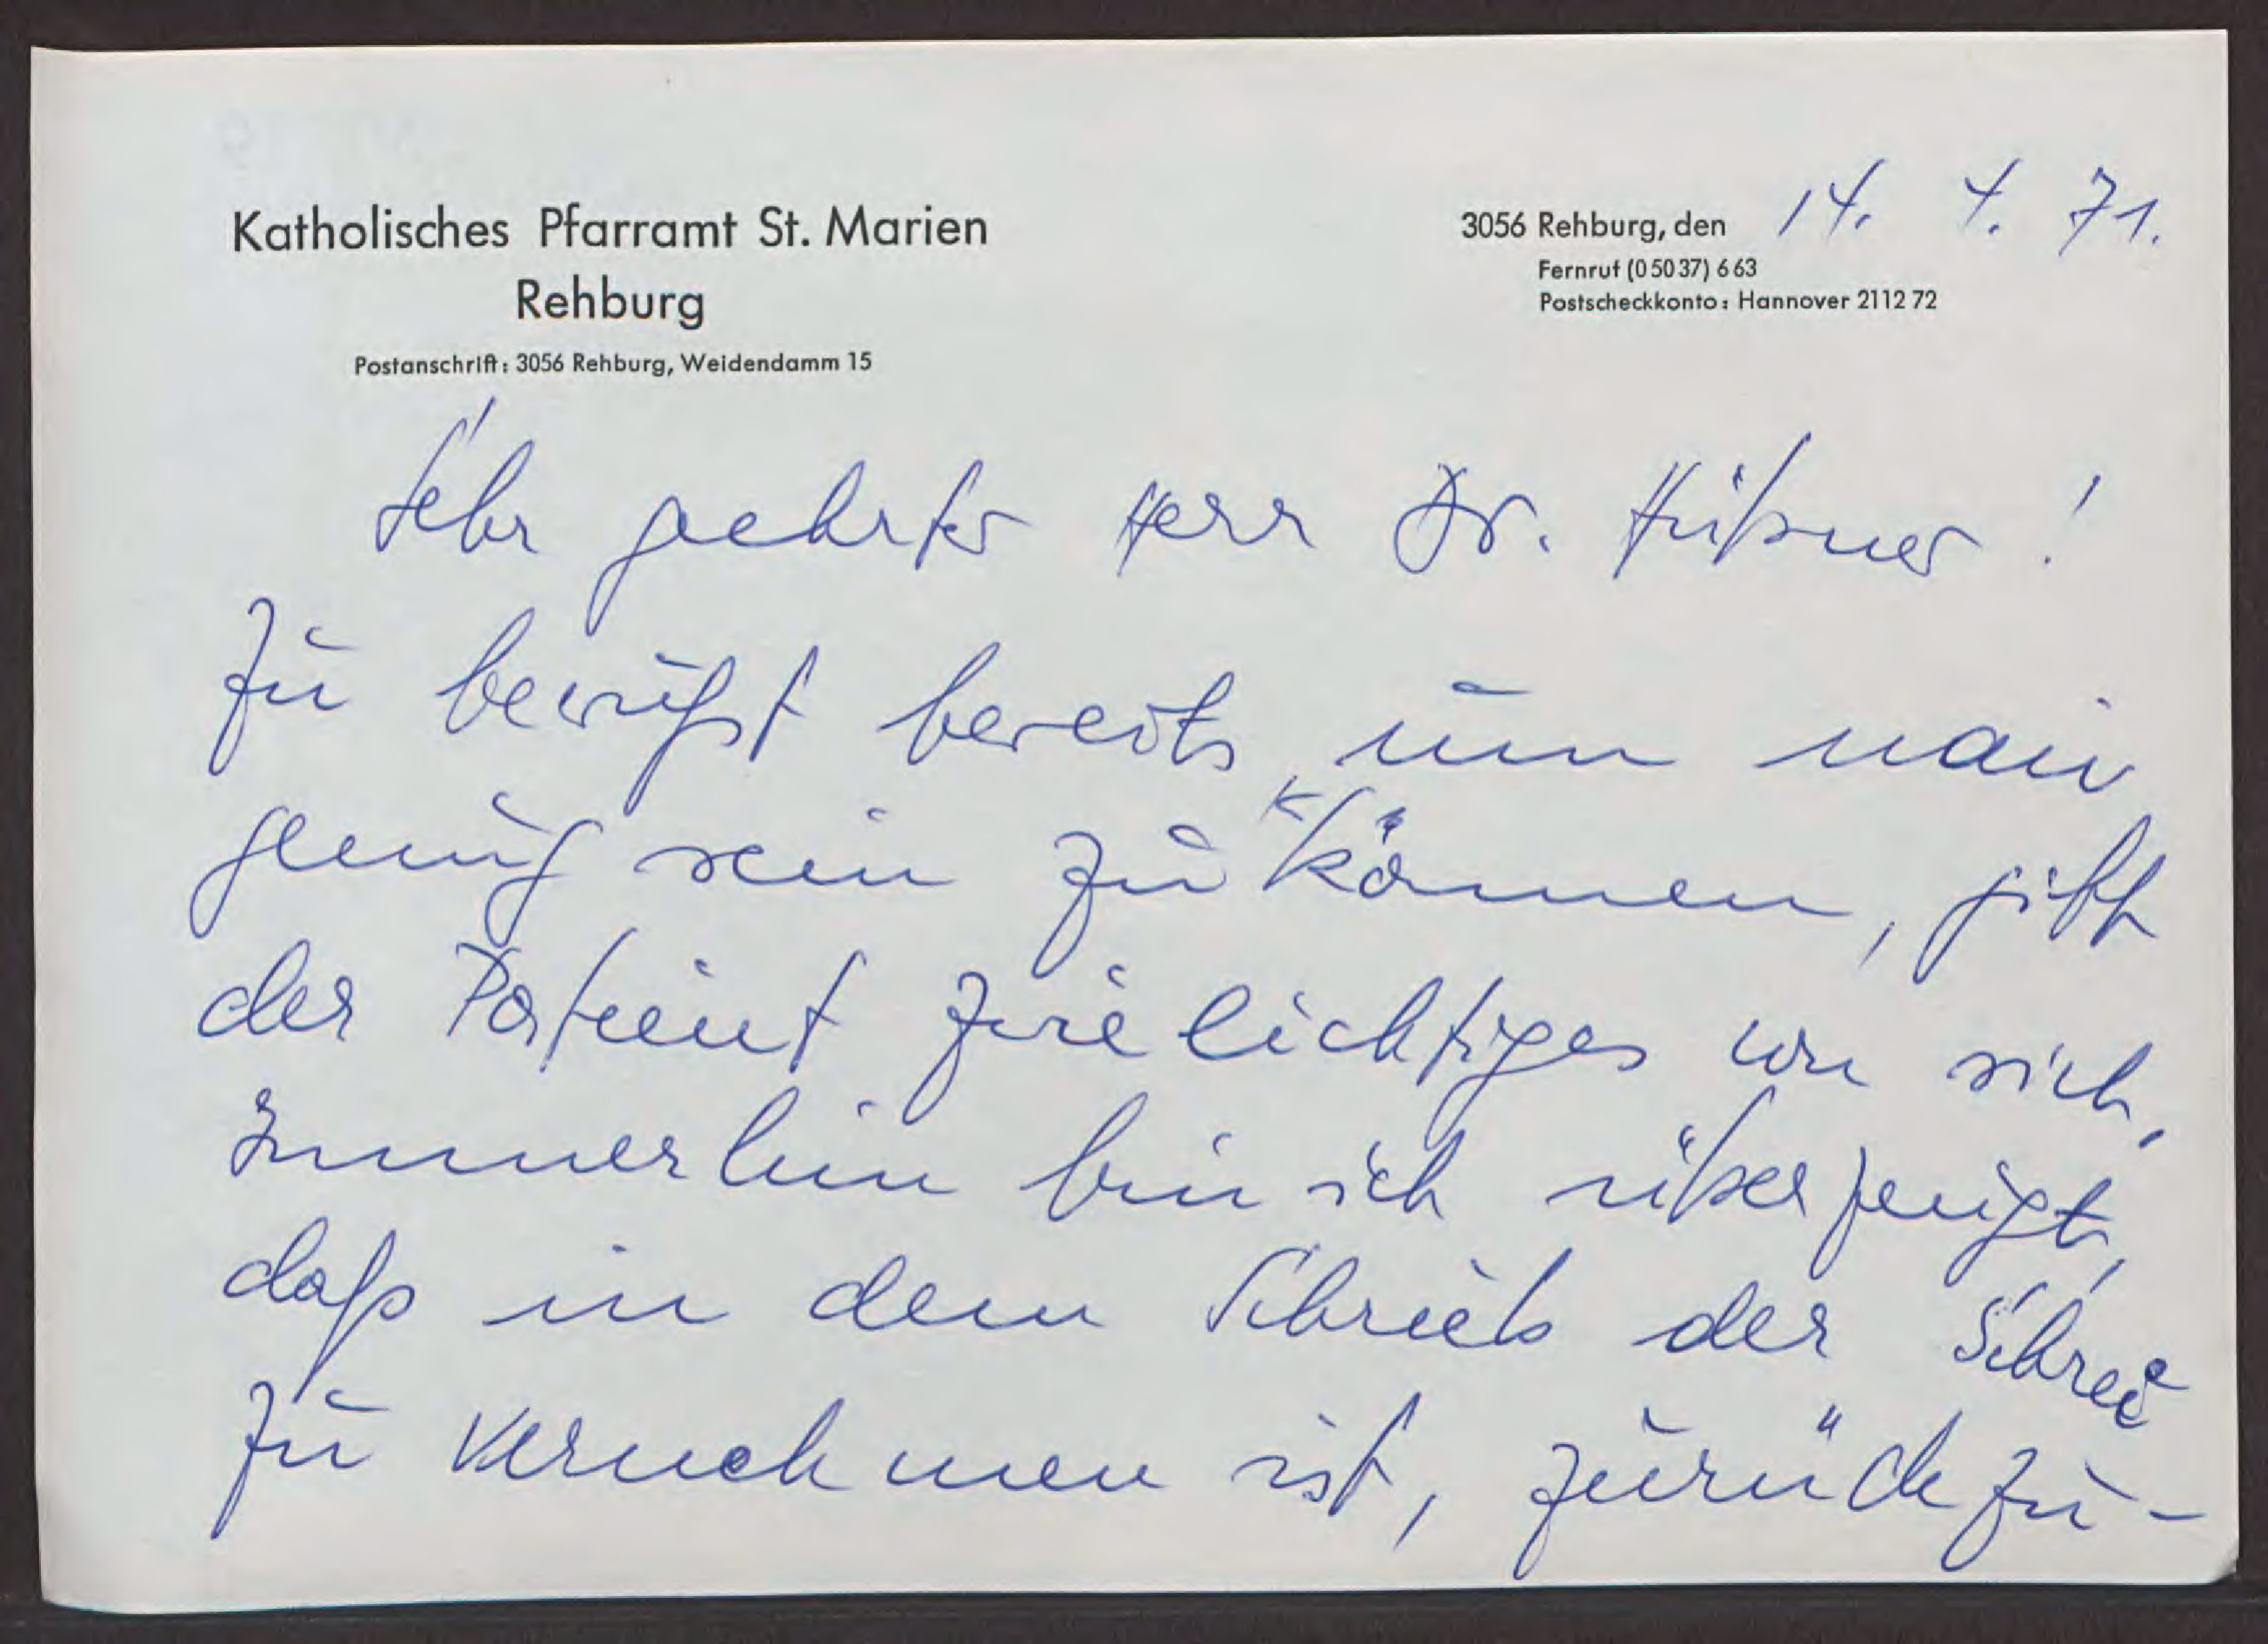 Katholisches Pfarramt St. Marien
Rehburg
Postanschrift: 3056 Rehburg, Weidendamm 15
3056 Rehburg, den 14. 4. 71.
Fernruf (0 50 37) 6 63
Postscheckkonto: Hannover 2112 72
Sehr geehrter Herr Dr. Hübner!
Zu bewußt bereits, um naiv
genug sein zu können, gibt
der Patient Zwielichtiges von sich.
Immerhin bin ich überzeugt,
daß in dem Schrieb der Schrei
zu vernehmen ist, zurückzu-